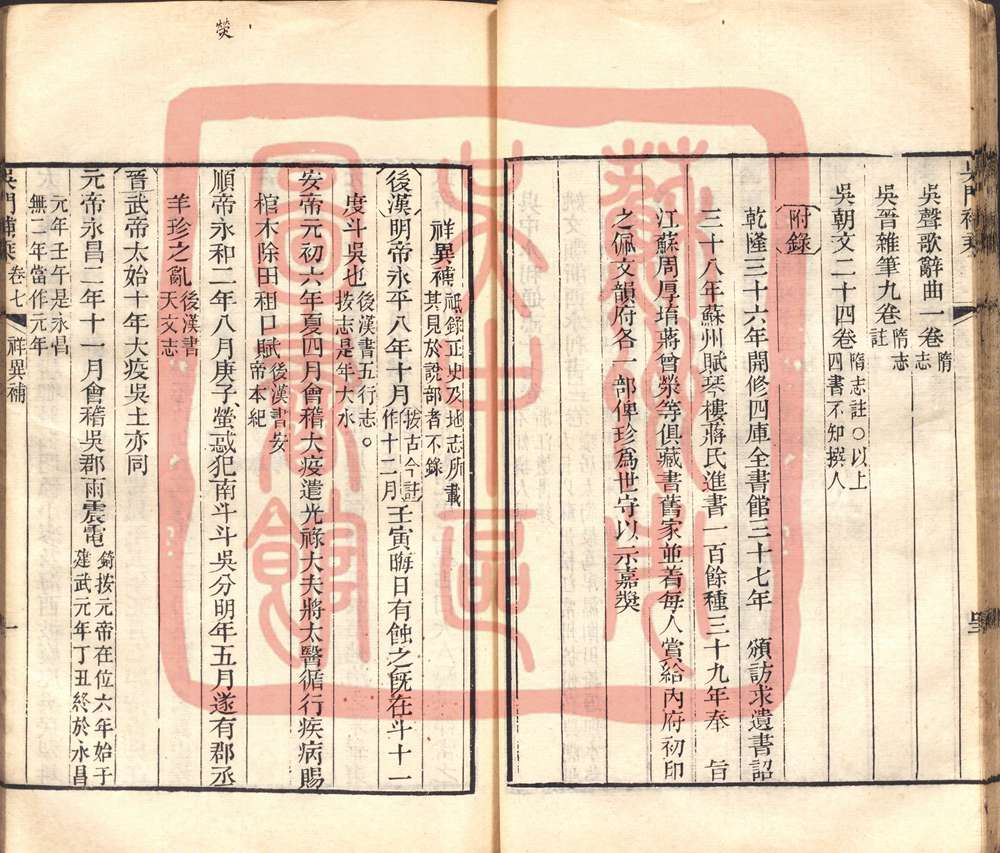 吳聲歌辭曲一卷隋志
吳晉雜筆九卷隋志註
吳朝文二十四卷隋志註○以上四書不知撰人
附錄
乾隆三十六年開修四庫全書館三十七年　頒訪求遺書詔
三十八年蘇州賦琴樓蔣氏進書一百餘種三十九年奉　旨
江蘇周厚堉蔣曾瀅等俱藏書舊家並着每人賞給內府初印
之佩文韻府各一部俾珍爲世守以示嘉獎
熒
祥異補祗錄正史及地志所載其見於說部者不錄
後漢明帝永平八年十月按古今註作十二月壬寅晦日有蝕之旣在斗十一
度斗吳也後漢書五行志。按志是年大水
安帝元初六年夏四月會稽大疫遣光祿大夫將太醫循行疾病賜
棺木除田租口賦後漢書安帝本紀
順帝永和二年八月庚子螢惑犯南斗斗吳分明年五月遂有郡丞
羊珍之亂後漢書天文志
晉武帝太始十年大疫吳土亦同
元帝永昌二年十一月會稽吳郡雨震電錡按元帝在位六年始于建武元年丁丑終於永昌
元年壬午是永昌無二年當作元年
吳門補乘　卷七　祥異補　一
蘇州市吳中區圖書館